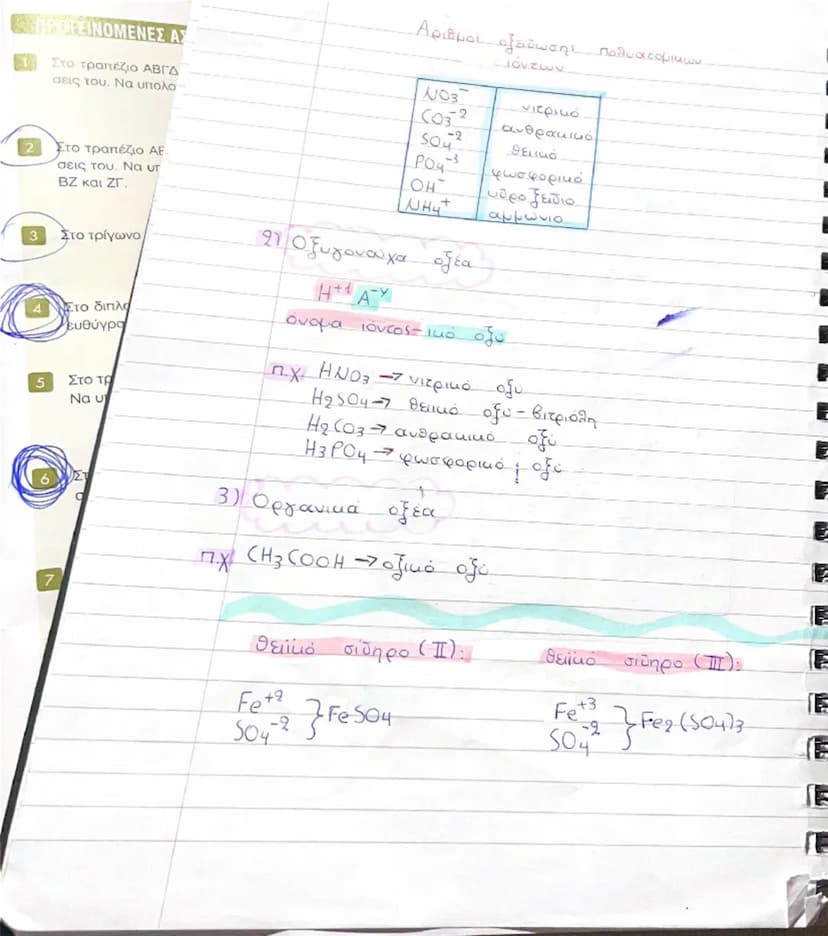 ΠΡΟΤΕΙΝΟΜΕΝΕΣ ΑΣ
1 Στο τραπέζιο ΑΒΓΔ
σεις του. Να υπολο
2 Στο τραπέζιο ΑΕ
σεις του. Να υπ
ΒΖ και ΖΓ.
3 Στο τρίγωνο
4 Στο διπλα
ευθύγρα
5 Στο τρ
Να υπ
6 Στ
7
Αριθμοί οξείδωσης πολυατομικών
ιόντων
NO3⁻ νιτρικό
CO3⁻² ανθρακικό
SO4⁻² θειικό
PO4⁻³ φωσφορικό
OH⁻ υδροξείδιο
NH4⁺ αμμώνιο
2) Οξυγονούχα οξέα
H⁺¹ A⁻ʸ
όνομα ιόντος-ικό οξύ
π.χ. HNO3 → νιτρικό οξύ
H2SO4 → θειικό οξύ - βιτριόλη
H2CO3 → ανθρακικό οξύ
H3PO4 → φωσφορικό οξύ
3) Οργανικά οξέα
π.χ CH3COOH → οξικό οξύ
θειικό σίδηρο (II): θειικό σίδηρο (III):
Fe⁺² Fe⁺³
SO4⁻² } FeSO4 SO4⁻² } Fe2(SO4)3